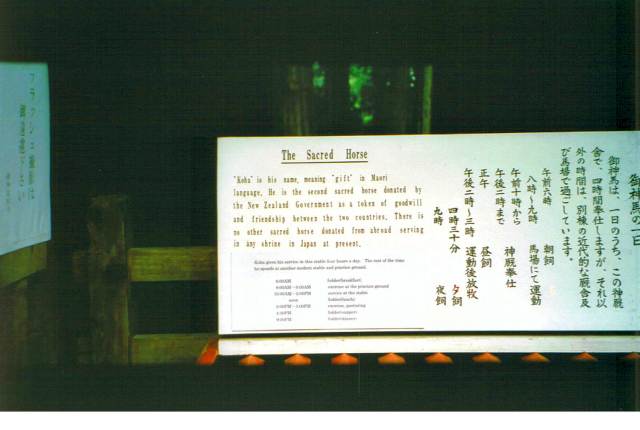 フラッシュ撮影は
御遠慮下さい
The Sacred Horse
"Koha" is his name, meaning "gift" in Maori
language. He is the second sacred horse donated by
the New Zealand Government as a token of goodwill
and friendship between the two countries. There is
no other sacred horse donated from abroad serving
in any shrine in Japan at present.
Koha gives his service in this stable four hours a day. The rest of the time
he spends at another modern stable and practice ground.
6:00AM fodder(breakfast)
8:00AM-9:00AM exercise at the practice ground
10:00AM-2:00PM service at the stable
noon fodder(lunch)
2:00PM-3:00PM exercise, pasturing
4:30PM fodder(supper)
9:00PM fodder(dinner)
御神馬の一日
御神馬は、一日のうち、この神厩
舎で、四時間奉仕しますが、それ以
外の時間は、別棟の近代的な厩舎及
び馬場で過ごしています。
午前六時 朝飼
八時〜九時 馬場にて運動
午前十時から
午後二時まで 神厩奉仕
正午 昼飼
午後二時〜三時 運動後放牧
四時三十分 夕飼
九時 夜飼